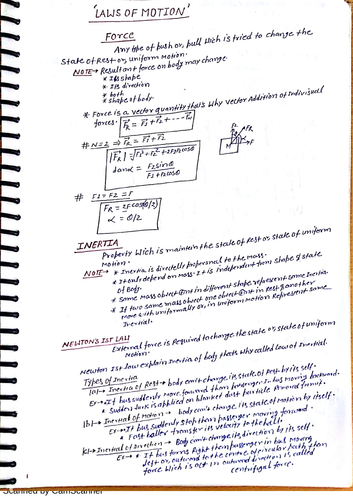 'LAWS OF MOTION'
FORCE
Any type of push or, pull which is tried to change the
State of Rest or, Uniform Motion.
NOTE → Resultant force on body may change
* Its shape
* Its direction
* both
* shape of body
* Force is a vector quantity that's why Vector Addition of Individual
forces. F_R = F1 + F2 + ---- Fn
# N=2 ⇒ F_R = F1 + F2
|F_R| = √F1²+F2²+2F1F2cosθ
tanα = F2sinθ / F1+F2cosθ
# F1 = F2 = F
F_R = 2F cos(θ/2)
α = θ/2
INERTIA
Property which is maintain the state of Rest or state of uniform
Motion.
NOTE → * Inertia is directly proportional to the Mass.
* It only depend on mass. It is independent from shape & state
of Body.
* Some mass object in different shape represent same Inertia.
* If two same mass object one object in Rest & another
move with uniformally or, in uniform motion Represent same
Inertial.
NEWTON'S IST LAW
External force is Required to change the state or state of uniform
Motion.
Newton Ist law explain Inertia of body that's why called law of Inertial.
Types of Inertia
(a) → Inertia of Rest → body can't change, its state of Rest by its self.
Ex → * If bus suddenly Move forward then passenger bus moving backward.
* Sudden Jerk is applied on blanket dust particle
(b) → Inertial of Motion → body can't change its state of Motion by itself.
Ex → * If bus suddenly stop then passenger moving forward.
* Fast baller transfer its velocity to the ball.
(c) → Inertial of Direction → Body can't change its direction by its self.
Ex → * If bus turns Right then passenger in bus moving
left or, outward to the centre of circular path & then
force which is act in outward direction is called
centrifugal force.
Scanned by CamScanner